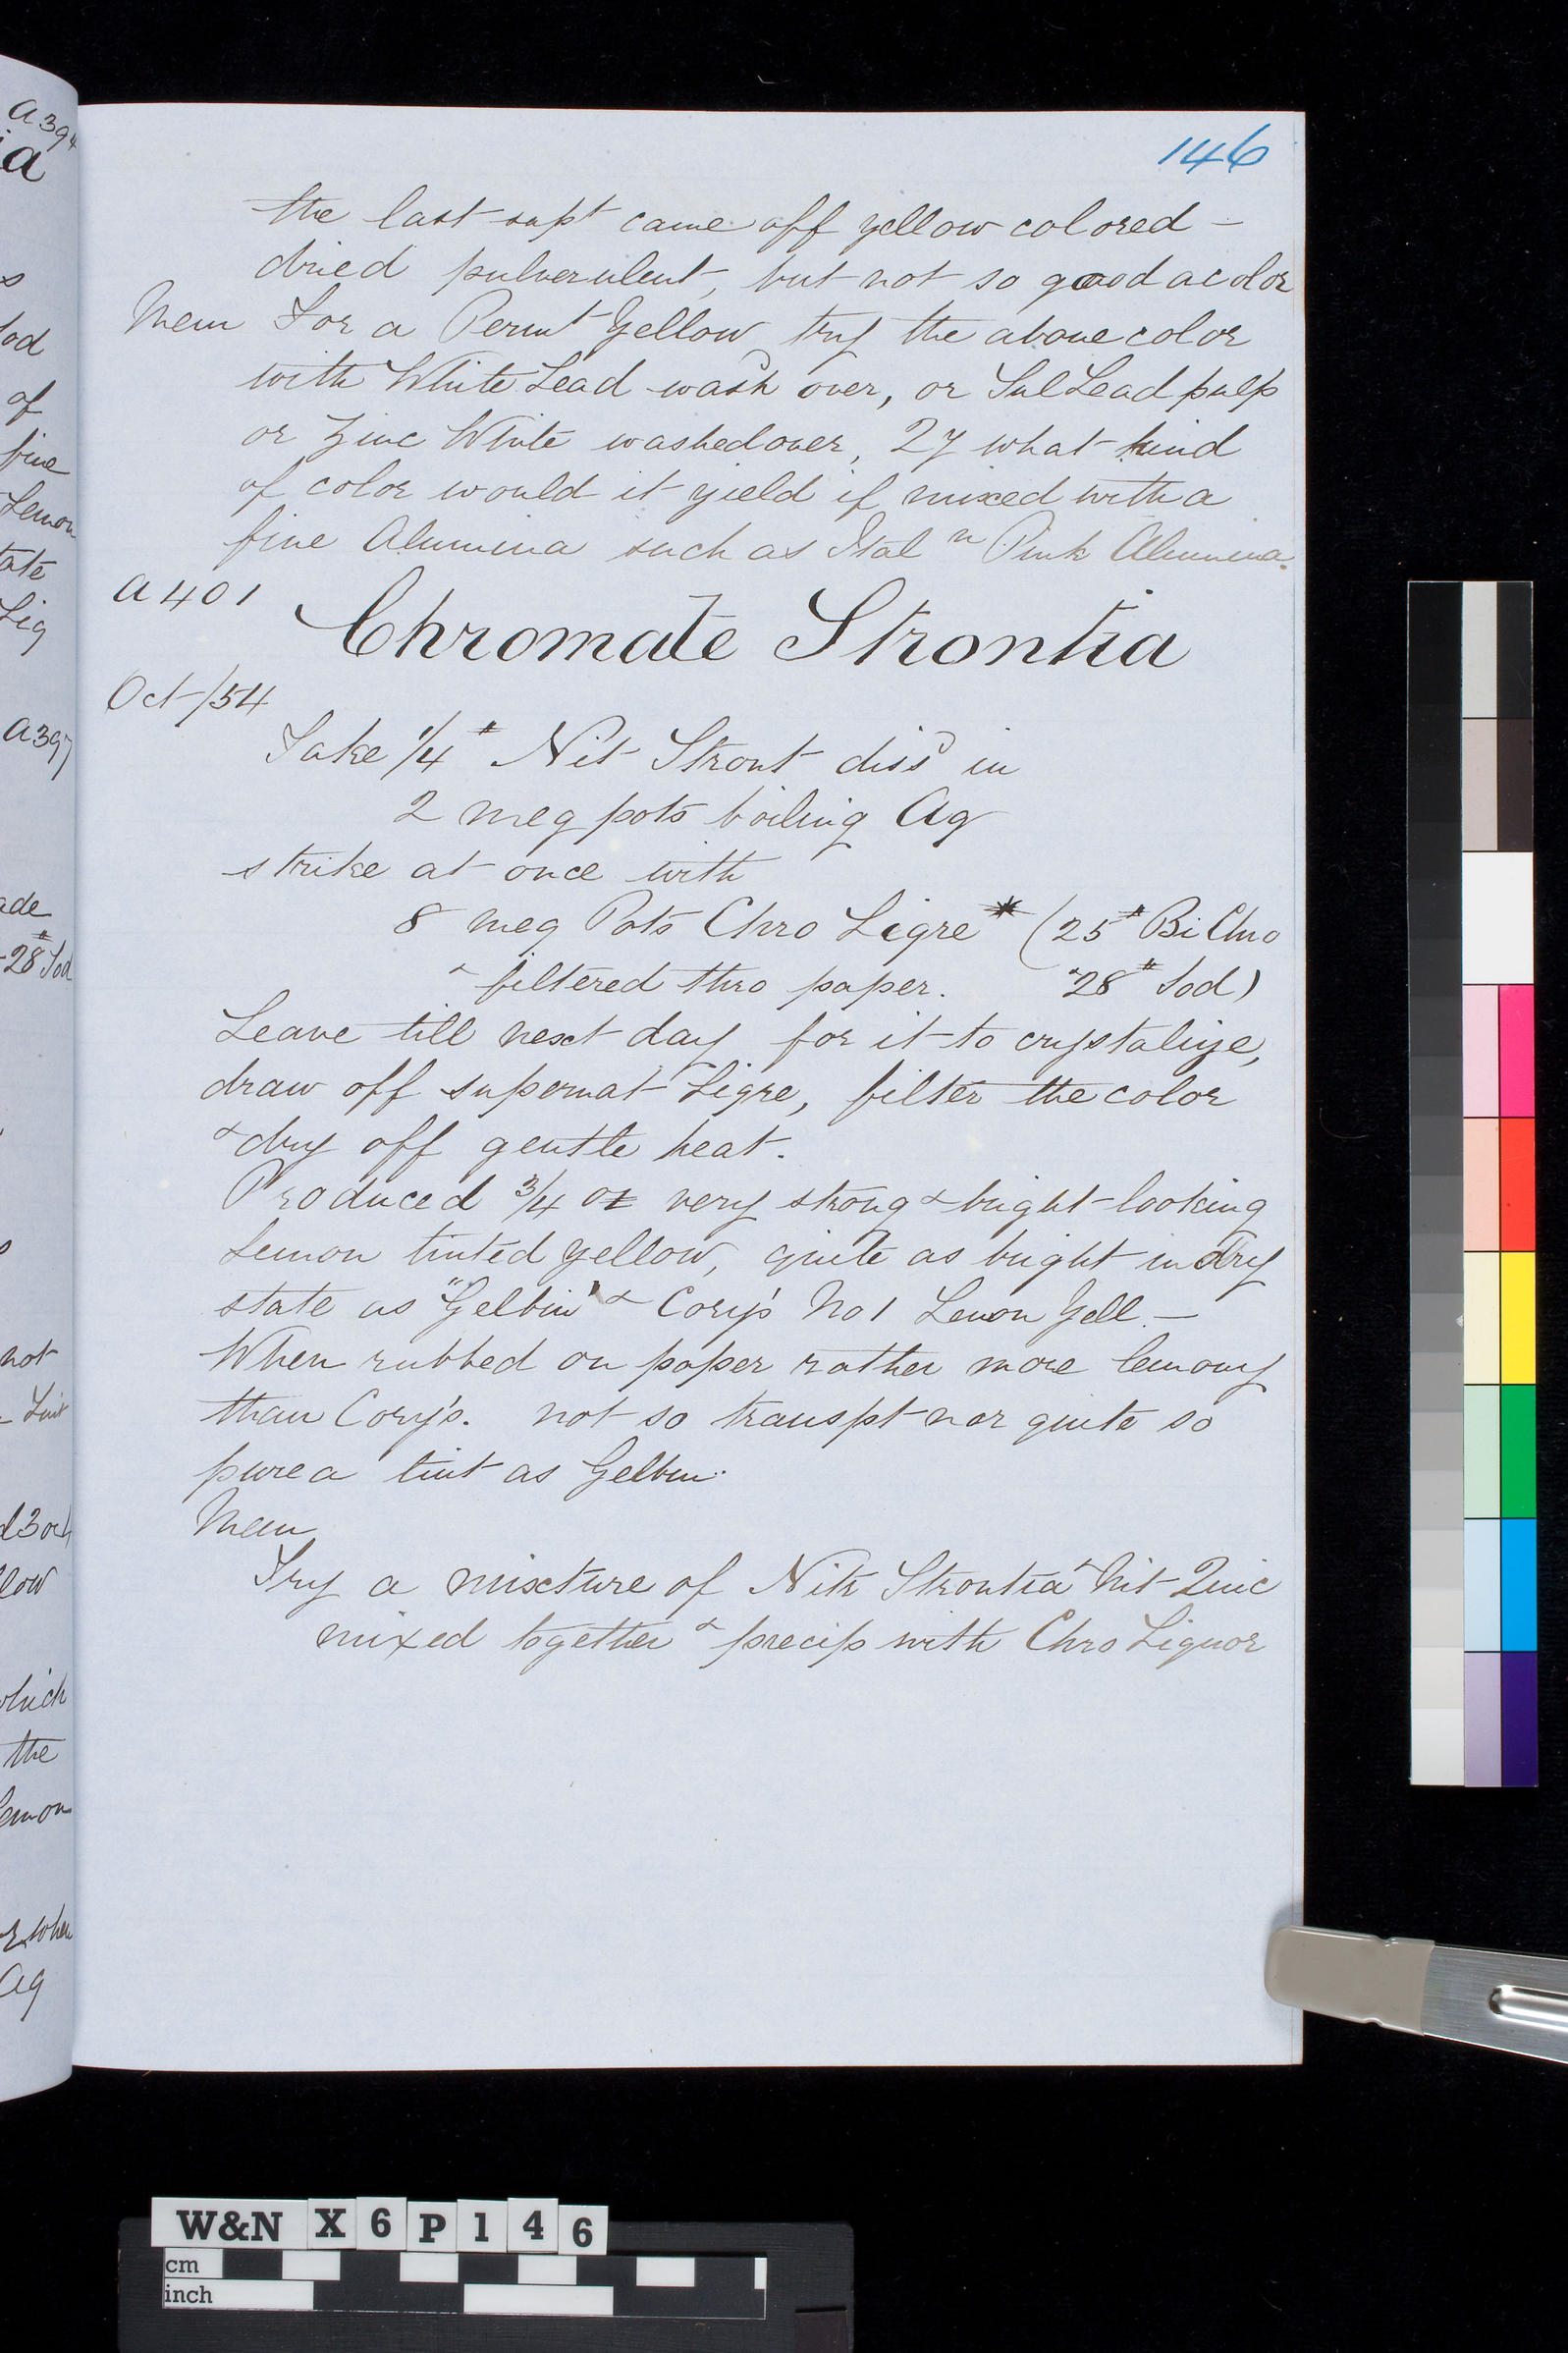 146
the last supt came off yellow colored –
dried pulverulent, but not so good a color
Mem For a Permt Yellow try the above color
with White Lead washd over, or Sul Lead pulp
or Zinc White washed over, 2y what kind
of color would it yield if mixed with a
fine Alumina such as Italn Pink Alumina.
A401
Chromate Strontia
Oct/54
Take 1/4# Nit Stront dissd in
2 meg pots boiling Aq
strike at once with
8 meg Pots Chro Liqre * (25# Bi Chro
& filtered thro paper. & 28# Sod)
Leave till next day for it to crystalize,
draw off supernat Liqre, filter the color
& dry off gentle heat.
Produced 3/4 oz very strong & bright looking
Lemon tinted yellow, quite as bright in dry
state as "Gelbin" & Cory's No 1 Lemon Yell. –
When rubbed on paper rather more lemony
than Cory's. not so transpt nor quite so
pure a tint as Gelbin.
Mem
Try a mixture of Nitr Strontia & Nit Zinc
mixed together & precip with Chro Liquor
a 394
a
s
Sod
of
fine
Lemon
Liq
a397
ade
-28# Sod
not
low
which
the
Lemon
when
Aq
W&N X6P146
cm
inch